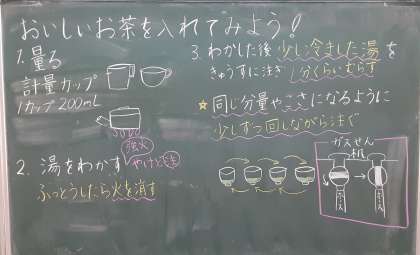 おいしいお茶を入れてみよう!
1. 量る
計量カップ
1カップ200mL
強火
やけど注
2. 湯をわかす
ふっとうしたら火を消す
3. わかした後 少し冷ました湯を
きゅうすに注ぎ 1分くらいむらす
☆同じ分量やこさになるように
少しずつ回しながら注ぐ
ガスせん
机
ガス
ガス